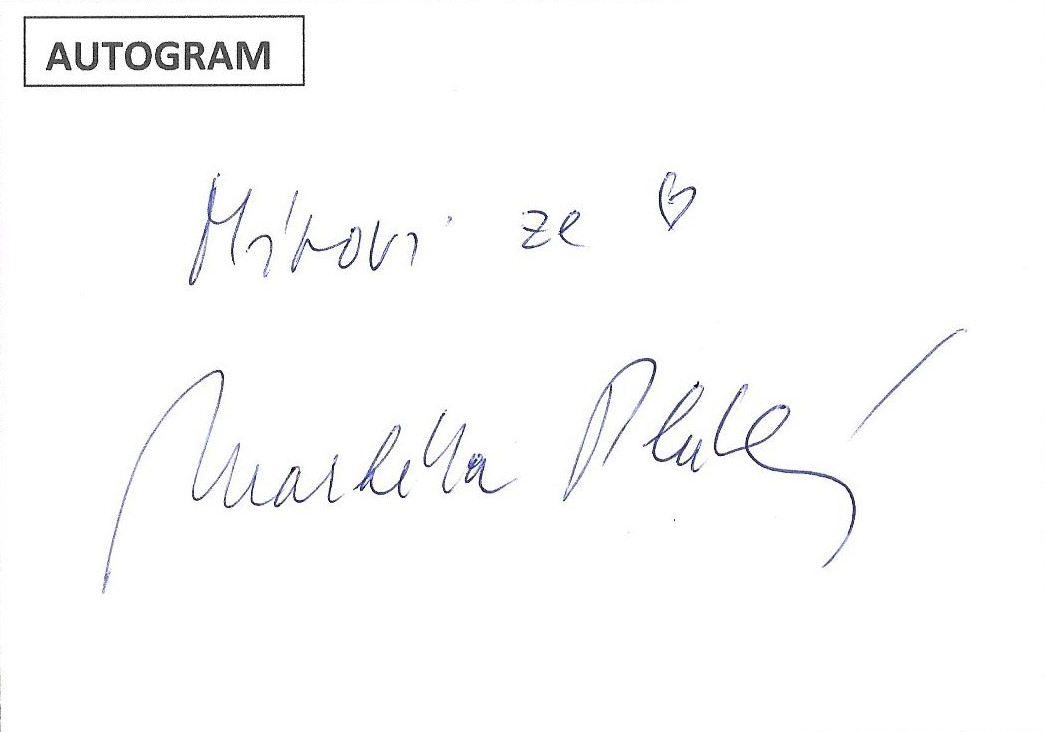 AUTOGRAM
Mírovi ze ♡
Markéta Plá